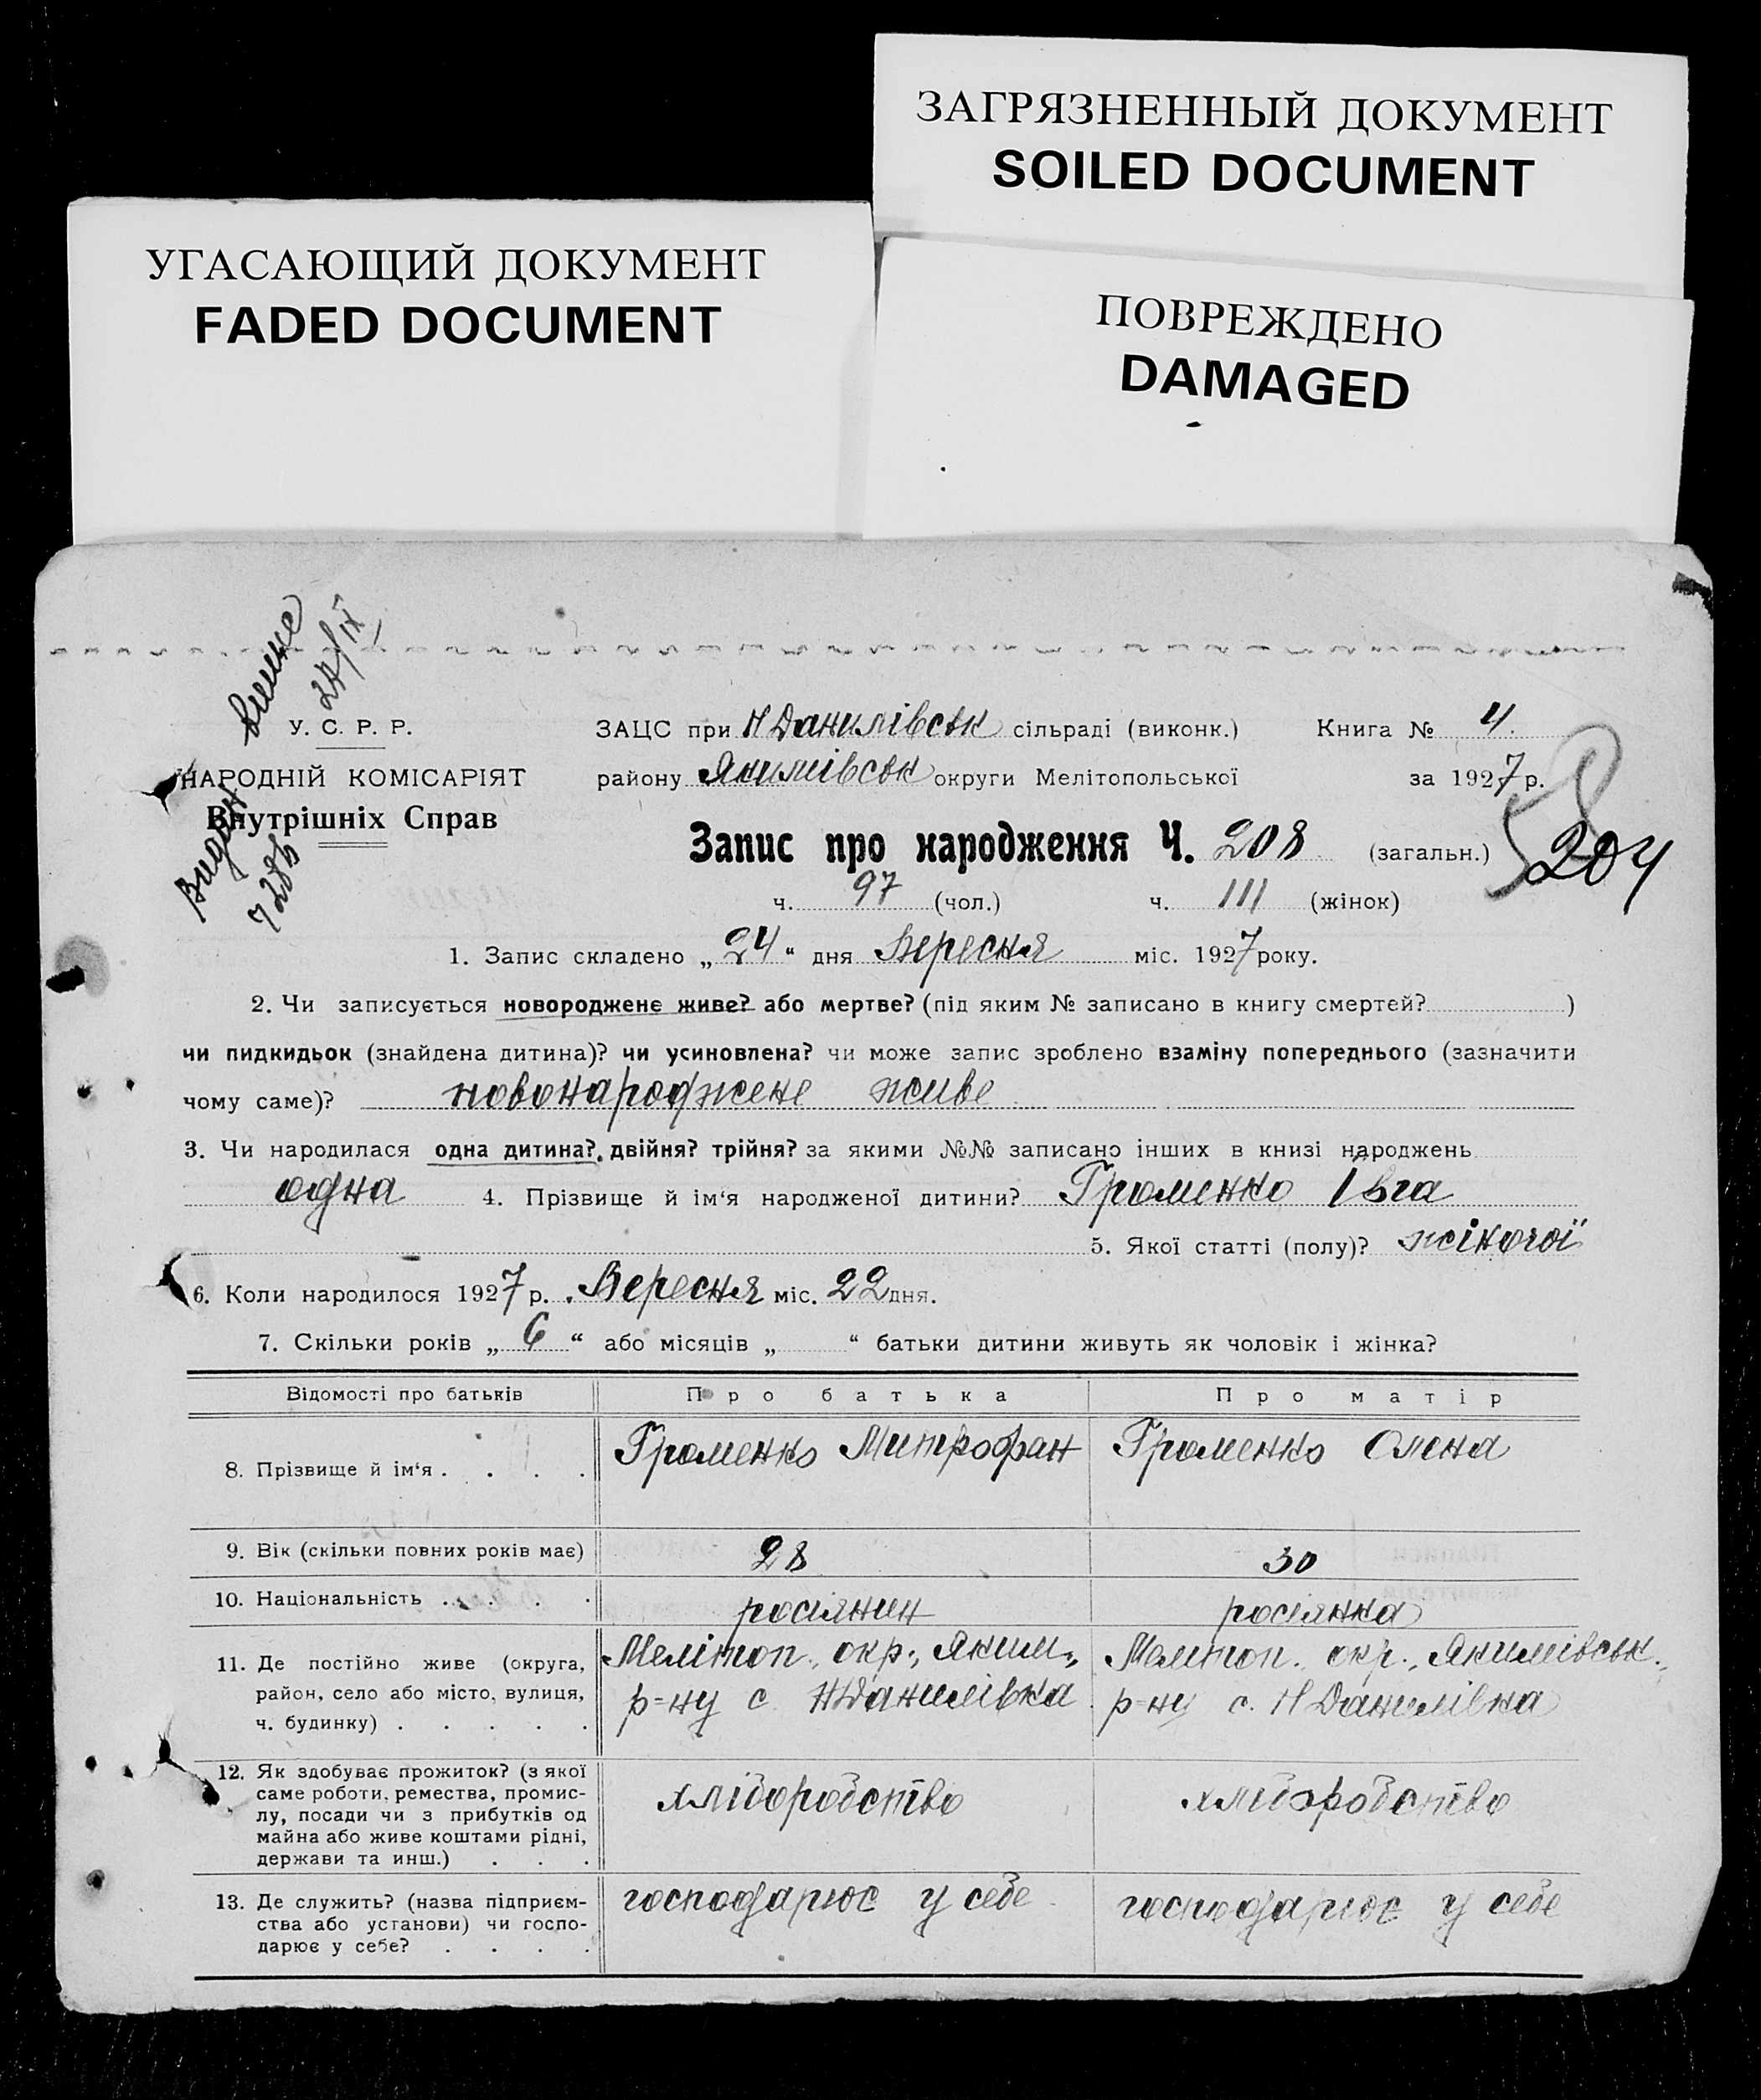 ЗАГРЯЗНЕННЫЙ ДОКУМЕНТ
SOILED DOCUMENT
УГАСАЮЩИЙ ДОКУМЕНТ
FADED DOCUMENT
ПОВРЕЖДЕНО
DAMAGED
24/IX
У. С. Р. Р.
НАРОДНІЙ КОМІСАРІЯТ
Внутрішніх Справ
ЗАЦС при Н Данилівськ сільраді (виконк.) Книга № 4.
району Якимівськ округи Мелітопольської за 1927 р.
Запис про народження Ч. 208 (загальн.) 204
ч. 97 (чол.) ч. 111 (жінок)
1. Запис складено „24“ дня Вересня міс. 1927 року.
2. Чи записується новороджене живе? або мертве? (під яким № записано в книгу смертей? )
чи пидкидьок (знайдена дитина)? чи усиновлена? чи може запис зроблено взаміну попереднього (зазначити
чому саме)? новонароджене живе
3. Чи народилася одна дитина?. двійня? трійня? за якими №№ записано інших в книзі народжень
одна 4. Прізвище й ім‘я народженої дитини? Громенко Івга
5. Якої статті (полу)? жіночої
6. Коли народилося 1927 р. Вересня міс. 22 дня.
7. Скільки років „6“ або місяців „ “ батьки дитини живуть як чоловік і жінка?
Відомості про батьків Про батька Про матір
8. Прізвище й ім‘я . . . . Громенко Митрофан Громенко Олена
9. Вік (скільки повних років має) 28 30
10. Національність . . . . росіянин росіянка
11. Де постійно живе (округа, район, село або місто, вулиця, ч. будинку) . . . . .
Мелітоп. окр., Яким., р=ну с. НДанилівка
Мелітоп. окр., Якимівськ., р=ну с. Н Данилівка
12. Як здобуває прожиток? (з якої
саме роботи, ремества, промис-
лу, посади чи з прибутків од
майна або живе коштами рідні,
держави та инш.) . . .
хліборобство хліборобство
13. Де служить? (назва підприєм-
ства або установи) чи госпо-
дарює у себе? . . . .
господарює у себе господарює у себе